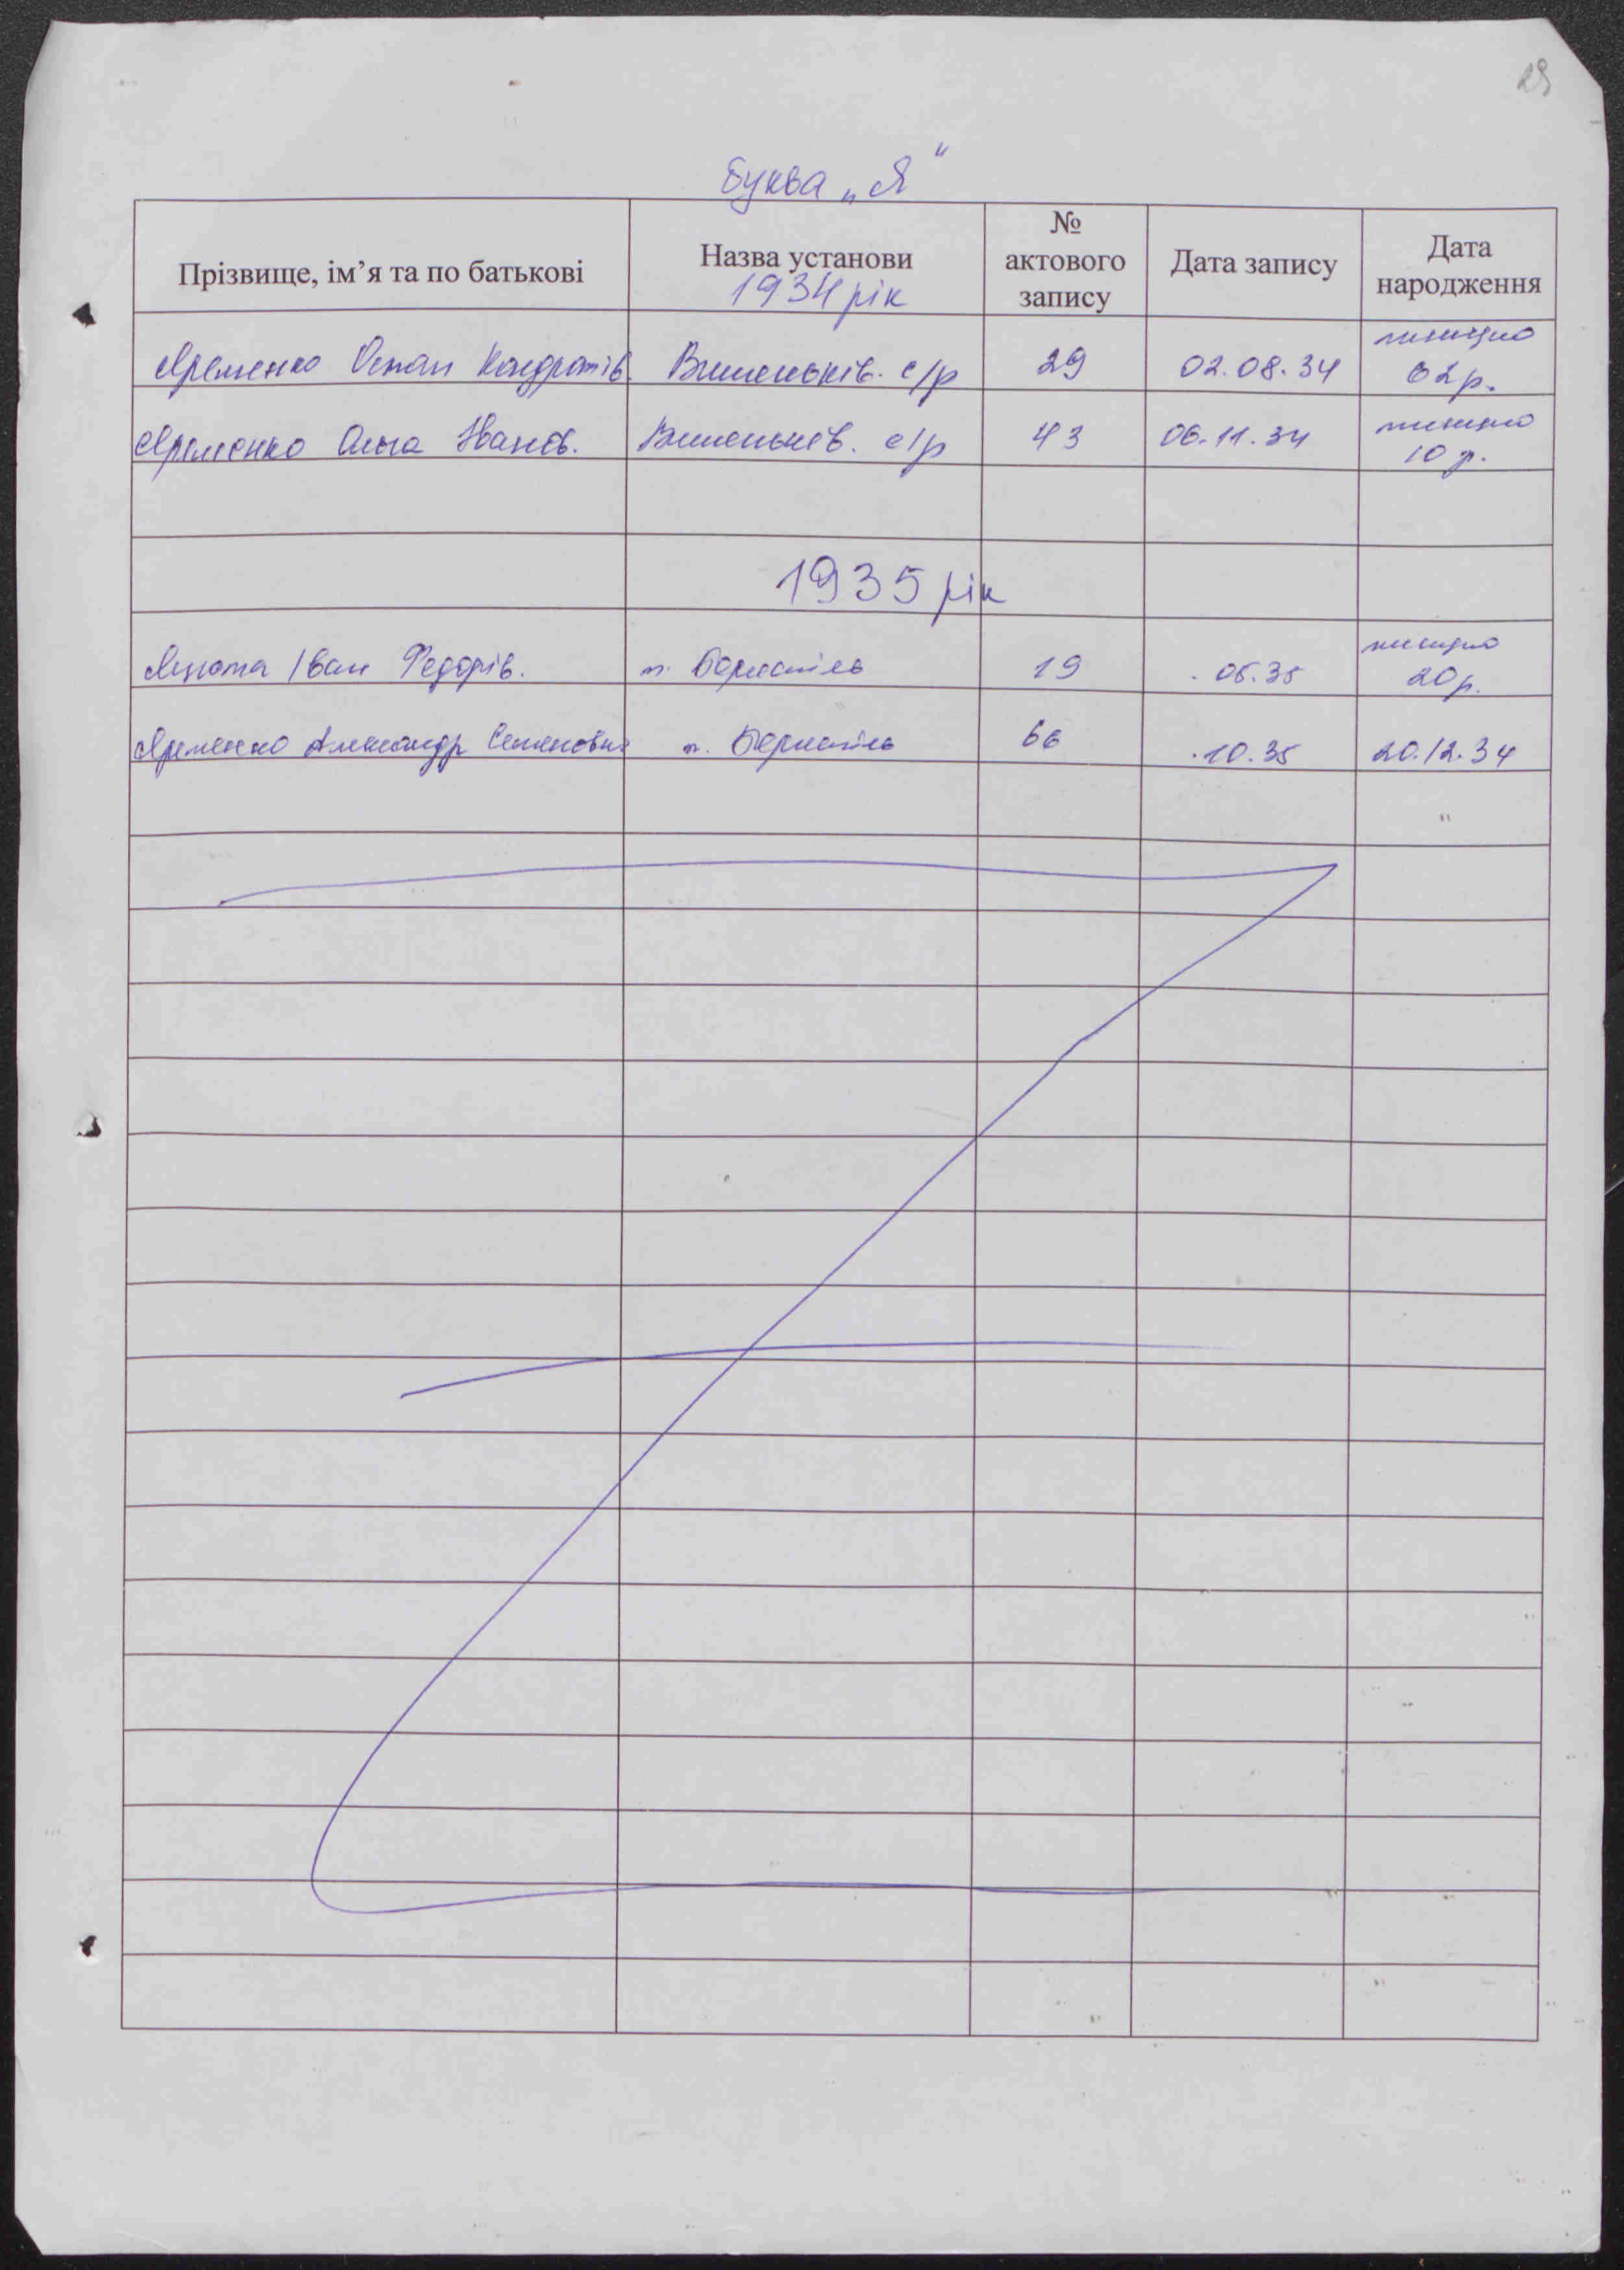 29
буква „Я“
Прізвище, ім’я та по батькові
Назва установи
1934 рік
№
актового
запису
Дата запису
Дата
народження
Яременко Остап Кондратів. Вишеньків. с/р 29 02.08.34 62 р.
Яременко Ольга Іванов. Вишеньків. с/р 43 06.11.34 10 р.
1935 рік
Іван Федорів. м. Бориспіль 19 . 05.35 20 р.
Яременко Александр Семенович м. Бориспіль 66 .10.35 20.12.34